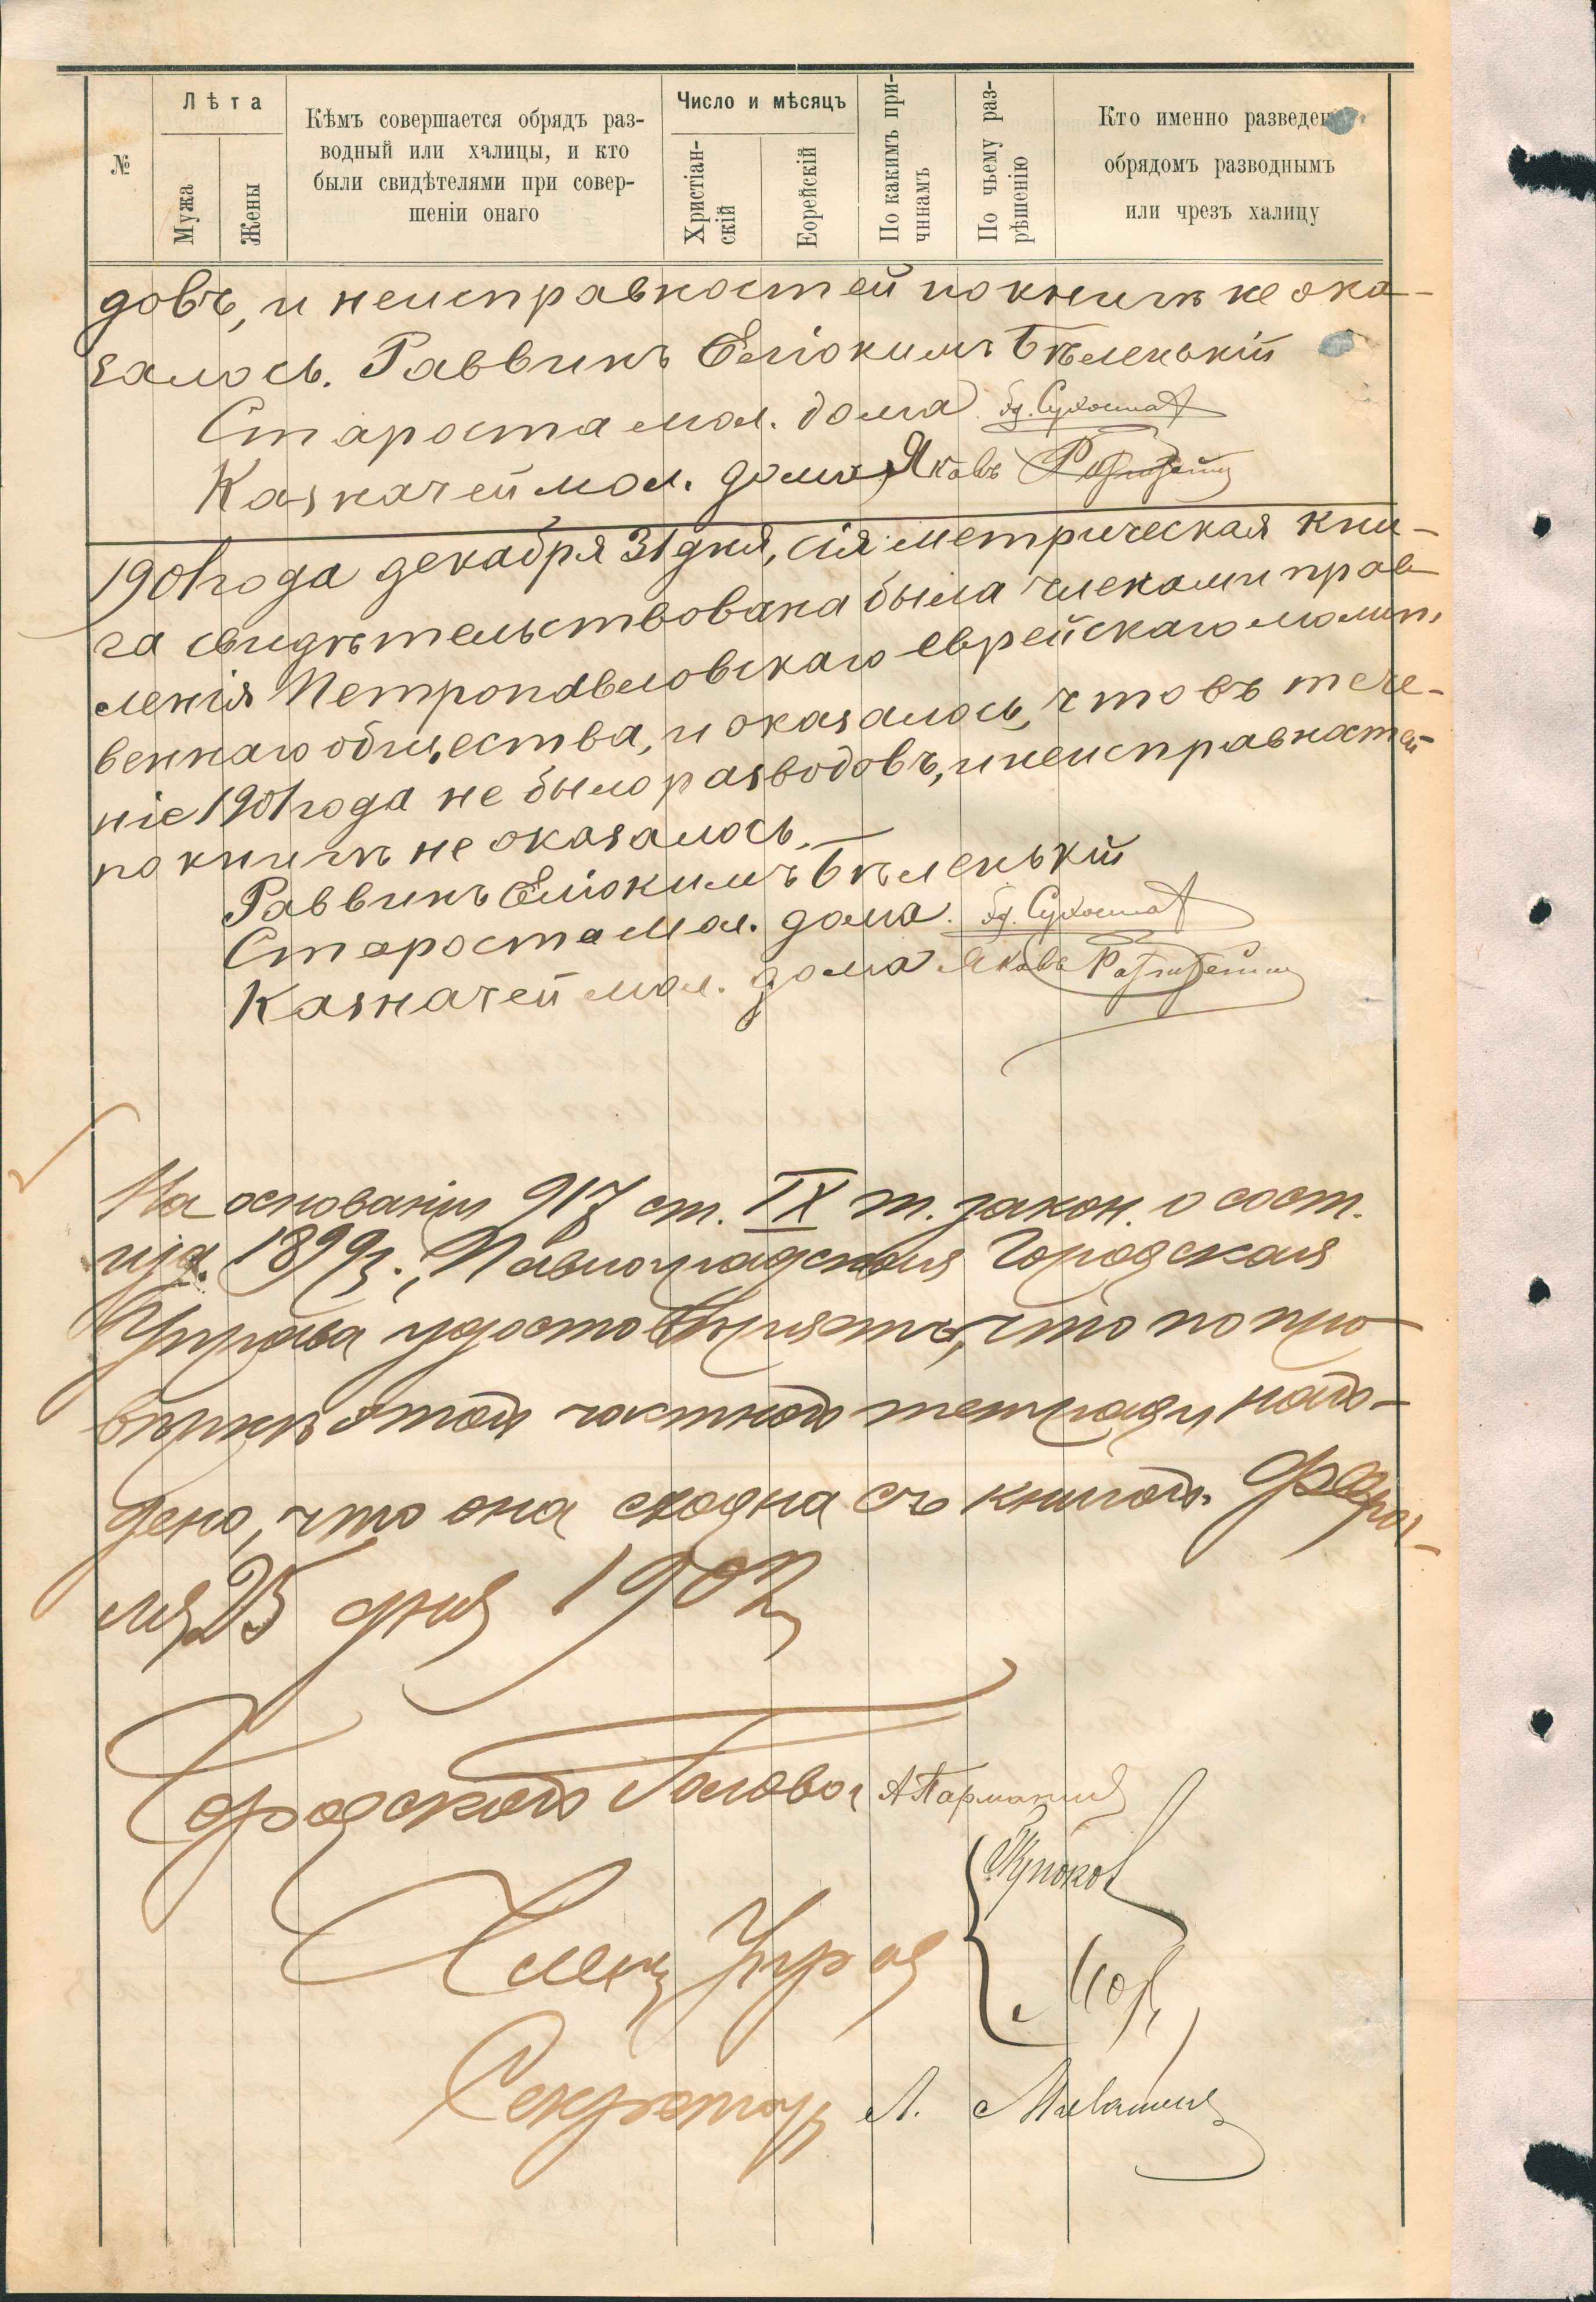 №
Лѣта
Мужа
Жены
Кѣмъ совершается обрядъ раз-
водный или халицы, и кто
были свидѣтелями при совер-
шеніи онаго
Число и мѣсяцъ
Христіан-
скій
Еорейскій
По какимъ при-
чинамъ
По чьему раз-
рѣшенію
Кто именно разведен
обрядомъ разводнымъ
или чрезъ халицу
довъ, и неисправностей по книгѣ не ока-
залось. Раввинъ Еліокимъ Бѣленькій
Староста мол. дома
Казначей мол. дома Яковъ
1901 года декабря 31 дня, сія метрическая кни-
га свидѣтельствована была членами прав-
ленія Петропавловскаго еврейскаго молит-
веннаго общества, и оказалось, что въ тече-
ніе 1901 года не было разводовъ, и неисправностей
по книгѣ не оказалось.—
Раввинъ Еліокимъ Бѣленькій
Староста мол. дома
Казначей мол. дома Яковъ
На основаніи 917 ст. IX т. закон. о сост.
изд. 1899 г., Павлоградская Городская
Управа удостовѣряетъ, что по про-
вѣркѣ этой частной тетради, най-
дено, что она сходна съ книгой. Февра-
ля 25 дня 1902 г.
Городской Голова
Члены Управы
Секретарь Л.